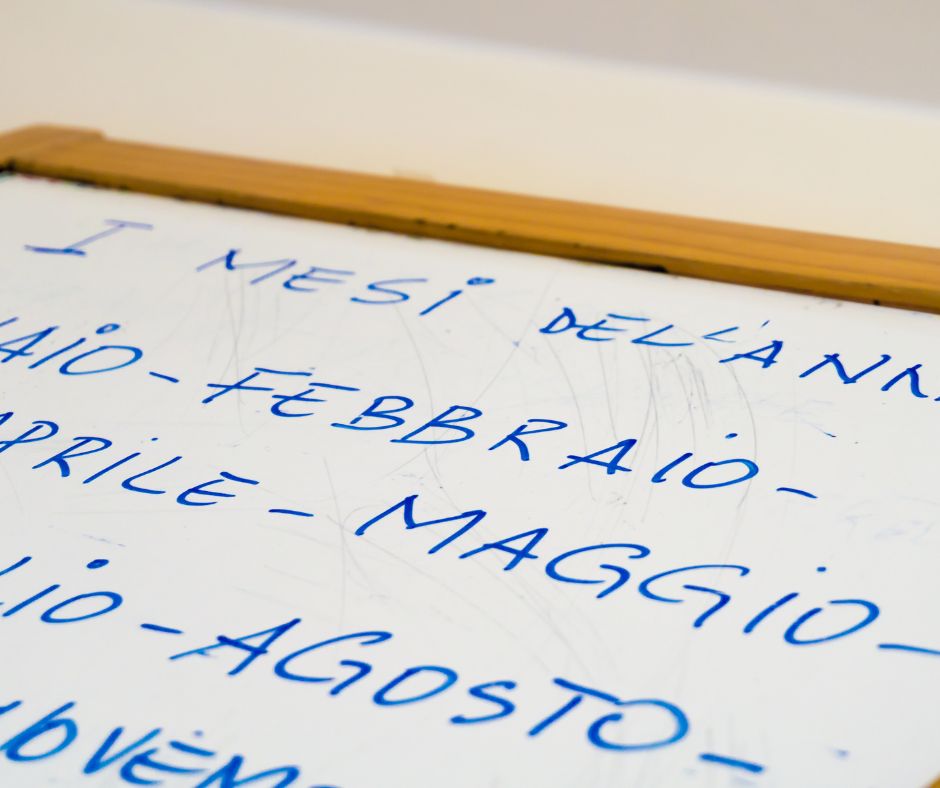 I MESI DELL'ANN
AIO - FEBBRAIO -
APRILE - MAGGIO -
LIO - AGOSTO -
OVEM